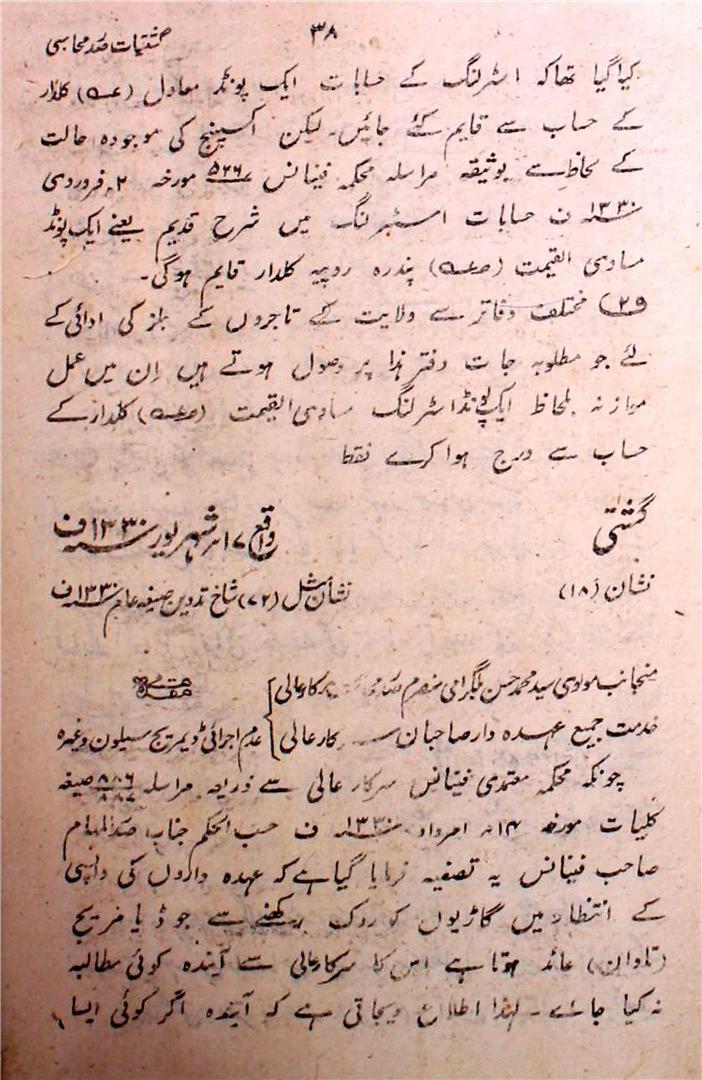 ۳۸
گشتیات صدر محاسبی
کیا گیا تھا کہ اسٹرلنگ کے حسابات ایک پونڈ معادل کلدار
کے حساب سے قایم کئے جائیں۔ لیکن اکسچینج کی موجودہ حالت
کے لحاظ سے بوثیقہ مراسلہ محکمہ فینانس ۵۲۶ مورخہ ۲ فروردی
۱۳۳۰ ف حسابات اسٹرلنگ میں شرح قدیم یعنے ایک پونڈ
مساوی القیمت پندرہ روپیہ کلدار قایم ہوگی۔
(۲) مختلف دفاتر سے ولایت کے تاجروں کے بلز کی ادائی کے
لئے جو مطلوبہ جات دفتر ہذا پر وصول ہوتے ہیں ان میں عمل
موازنہ بلحاظ ایک پونڈ اسٹرلنگ مساوی القیمت کلدار کے
حساب سے درج ہوا کرے فقط
گشتی
واقع ۱۷ شہریور ۱۳۳۰ ف
نشان (۱۸)
نشان مثل (۷۲) شاخ تدوین صیغہ عام ۱۳۳۰ ف
منجانب مولوی سید محمد حسن بلگرامی منصرم صدر محاسب سرکار عالی
مقدمہ
خدمت جمیع عہدہ دار صاحبان سرکار عالی
عدم اجرائی ڈیمریج سیلون وغیرہ
چونکہ محکمہ معتمدی فینانس سرکار عالی سے ذریعہ مراسلہ ۸۸۶ / ۸۸۷ صیغہ
کلیات مورخہ ۱۴ امرداد ۱۳۳۰ ف حسب الحکم جناب صدر المہام
صاحب فینانس یہ تصفیہ فرمایا گیا ہے کہ عہدہ داروں کی واپسی
کے انتظار میں گاڑیوں کو روک رکھنے سے جو ڈیامریج
(تاوان) عائد ہوتا ہے اس کا سرکار عالی سے آیندہ کوئی مطالبہ
نہ کیا جائے۔ لہذا اطلاع دیجاتی ہے کہ آیندہ اگر کوئی ایسا